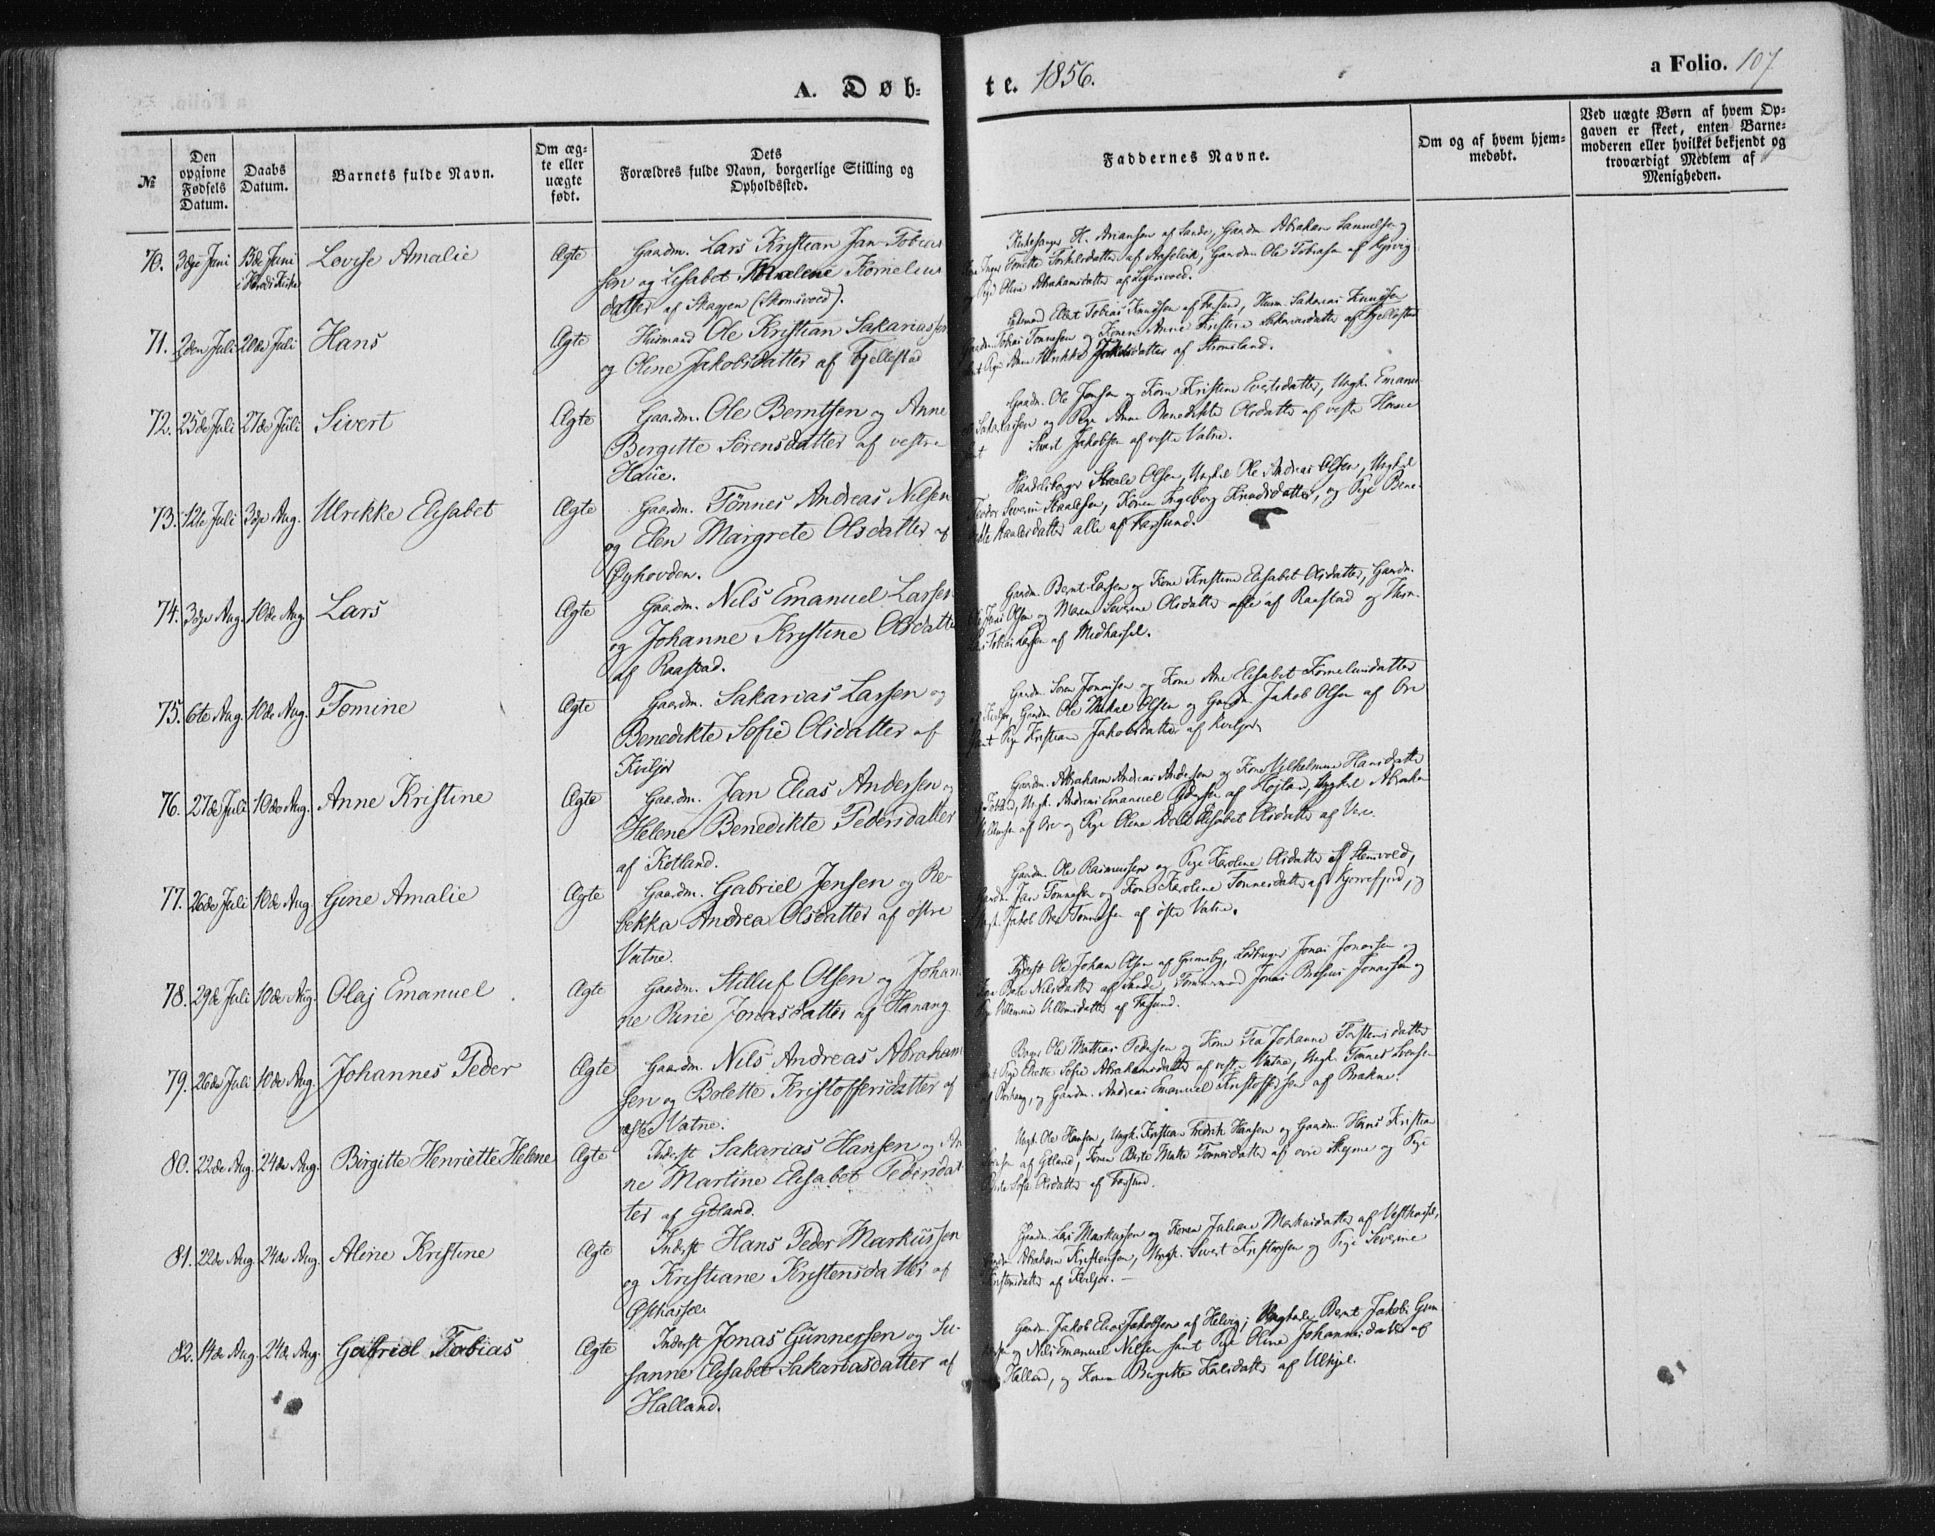 A. Døb-
te. 1856.
a Folio. 107
№
Den opgivne Fødsels Datum.
Daabs Datum.
Barnets fulde Navn.
Om ægte eller uægte født.
Dets Forældres fulde Navn, borgerlige Stilling og Opholdssted.
Faddernes Navne.
Om og af hvem hjemmedøbt.
Ved uægte Børn af hvem Opgaven er skeet, enten Barnemoderen eller hvilket bekjendt og troværdigt Medlem af Menigheden.
70. 3dje Juni 15de Juni Lovise Amalie Ægte Gaardm. Lars Kristian Jan Tobias
sen og Elisabet Malene Kornelius
datter af Skagen (Skomsvoed).
Kirkesanger H. Ariansen af Sande, Gaardm. Abrahan Samuelsen og
Ole Tobiasen af
Pige Oline Abrahamsdatter af
71. 3den Juli 20de Juli Hans Ægte Husmand Ole Kristian Sakariassen
og Oline Jakobsdatter af Fjellestad
Tobias Knudsen af Farsund, Husm. Sakarias Knudsen
Tobias Tønnesen og Konen Anne Kristine Sakariasdatter af Fjellestad
samt Pige Anne Jakobsdatter af Stromsland.
72. 25de Juli 27de Juli Sivert Ægte Gaardm. Ole Berntsen og Anne
Birgitte Sørensdatter af vestre
Haüe.
Gaardm. Ole Jensen og Kone Kristine Evertsdatter, Ungk. Emanu
Sakariassen og Pige Anne Benedikte Olsdatter af vestre Haue
Sivert Jakobsen af vestre Vatne.
73. 12te Juli 3dje Aug. Ulrikke Elisabet Ægte Gaardm. Tönnes Andreas Nilsen
og Elen Margrete Olsdatter af
Øyhovden.
Handelsborger Staale Olsen, Ungkl Ole Andreas Olsen, Ungkl
Teodor Severin Staalesen, Konen Ingeborg Knudsdatter, og Pige Bene
dikte Staalesdatter alle af Farsund.
74. 3dje Aug. 10de Aug. Lars Ægte Gaardm. Nils Emanuel Larsen
og Johanne Kristine Olsdatter
af Raastad.
Gaardm. Bernt Larsen og Kone Kristine Elisabet Olsdatter, Gaardm.
Olsen og Maren Severine Olsdatter alle af Raastad og
Tobias Larsen af Midhassel.
75. 6te Aug. 10de Aug. Tomine Ægte Gaardm. Sakarias Larsen og
Benedikte Sofie Olsdatter af
Kviljo
Gaardm. Søren Jonassen og Kone Ane Elisabet Korneliusdatter
af Kviljo, Gaardm. Ole Mikal Olsen og Gaardm. Jakob Olsen af Ore
samt Pige Kristiane Jakobsdatter af Kviljo
76. 27de Juli 10de Aug. Anne Kristine Ægte Gaardm. Jan Elias Andersen og
Helene Benedikte Pedersdatter
af Kotland.
Gaardm. Abraham Andreas Andersen og Kone Vilhelmine Hansdatter
Ungk. Andreas Emanuel Pedersen af Ungkl Abraham
af Ore og Pige Oline Elisabet Olsdatter af Ore.
77. 26de Juli 10de Aug. Gine Amalie Ægte Gaardm. Gabriel Jensen og Re-
bekka Andrea Olsdatter af östre
Vatne.
Gaardm. Ole Rasmussen og Pige Karoline Olsdatter af Stensvold,
Gaardm. Jan Tønnesen og Kone Karoline Tønnesdatter af Kjørrefjord, og
Ungk. Jakob Tønnesen af østre Vatne.
78. 29de Juli 10de Aug. Olaj Emanuel Ægte Gaardm. Stilluf Olsen og Johan
ne Marie Jonasdatter af Hanang
Ole Johan Olsen af Gumsby, Jonas Jonassen og
Pige Nilsdatter af Sande, Tømmermand Jonas Jonassen og
Pige Villemine Villumsdatter af Farsund.
79. 26de Juli 10de Aug. Johannes Peder Ægte Gaardm. Nils Andreas Abraham
sen og Bolette Kristoffersdatter af
vestre Vatne.
Ole Mathias Pedersen og Kone Tea Johanne Torstensdatter
Pige Sofie Abrahamsdatter af vestre Vatne, Ungk. Tønnes Svensen
og Gaardm. Andreas Emanuel Kristoffersen af Brekne.
80. 22de Aug. 24de Aug. Birgitte Henriette Helene Ægte Inderst Sakarias Hansen og An
ne Martine Elisabet Pedersdat
ter af Etland.
Ungk. Ole Hansen, Ungk. Kristian Fredrik Hansen og Gaardm. Hans Kristian
af Etland, Konen Berte Malte Tønnesdatter af øvre Skeyme og Pige
Sofie Olsdatter af Farsund.
81. 22de Aug. 24de Aug. Aline Kristine Ægte Inderst Hans Peder Markussen
og Kristiane Kristensdatter af
Østhassel
Gaardm. Lars Markussen og Konen Juliane Markusdatter af Vesthassel,
Gaardm. Abraham Kristensen, Ungk. Sivert Kristensen og Pige Severine
Kristensdatter af Kviljo.
82. 14de Aug. 24de Aug. Gabriel Tobias Ægte Inderst Jonas Gunnersen og Su-
sanne Elisabet Sakariasdatter af
Halland.
Gaardm. Jakob Elias Jakobsen af Helvig, Ungkarle Bernt Jakob Gun
nersen og Nils Emanuel Nilsen samt Pige Oline Johannesdatter af
Halland, og Konen Birgitte Karlsdatter af Ulhjel.